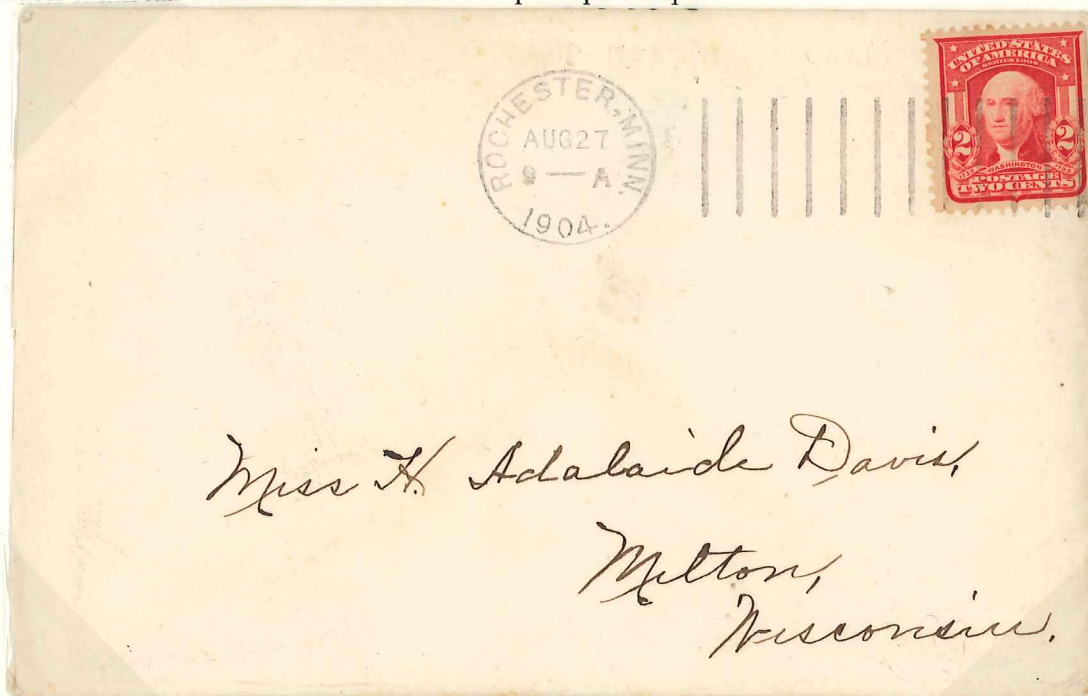 ROCHESTER, MINN.
AUG 27
9 — A
1904.
UNITED STATES
OF AMERICA
SERIES 1902
2 2
WASHINGTON
POSTAGE
TWO CENTS
Miss H. Adalaide Davis,
Milton,
Wisconsin.